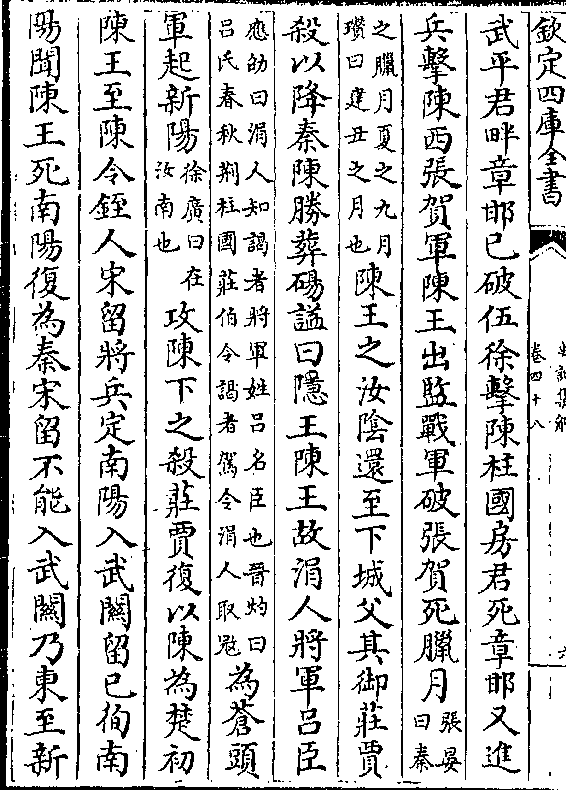 欽定四庫全書
史記集解
卷四十八
六
武平君畔章邯已破伍徐擊陳柱國房君死章邯又進
兵擊陳西張賀軍陳王出監戰軍破張賀死臘月張晏曰秦
之臘月夏之九月瓚曰建丑之月也陳王之汝陰還至下城父其御莊賈
殺以降秦陳勝葬碭諡曰隱王陳王故涓人將軍呂臣
應劭曰涓人知謁者將軍姓呂名臣也晉灼曰呂氏春秋荆柱國莊伯令謁者駕令涓人取冠為蒼頭
軍起新陽徐廣曰在汝南也攻陳下之殺莊賈復以陳為楚初
陳王至陳令銍人宋留將兵定南陽入武關留已徇南
陽聞陳王死南陽復為秦宋留不能入武關乃東至新